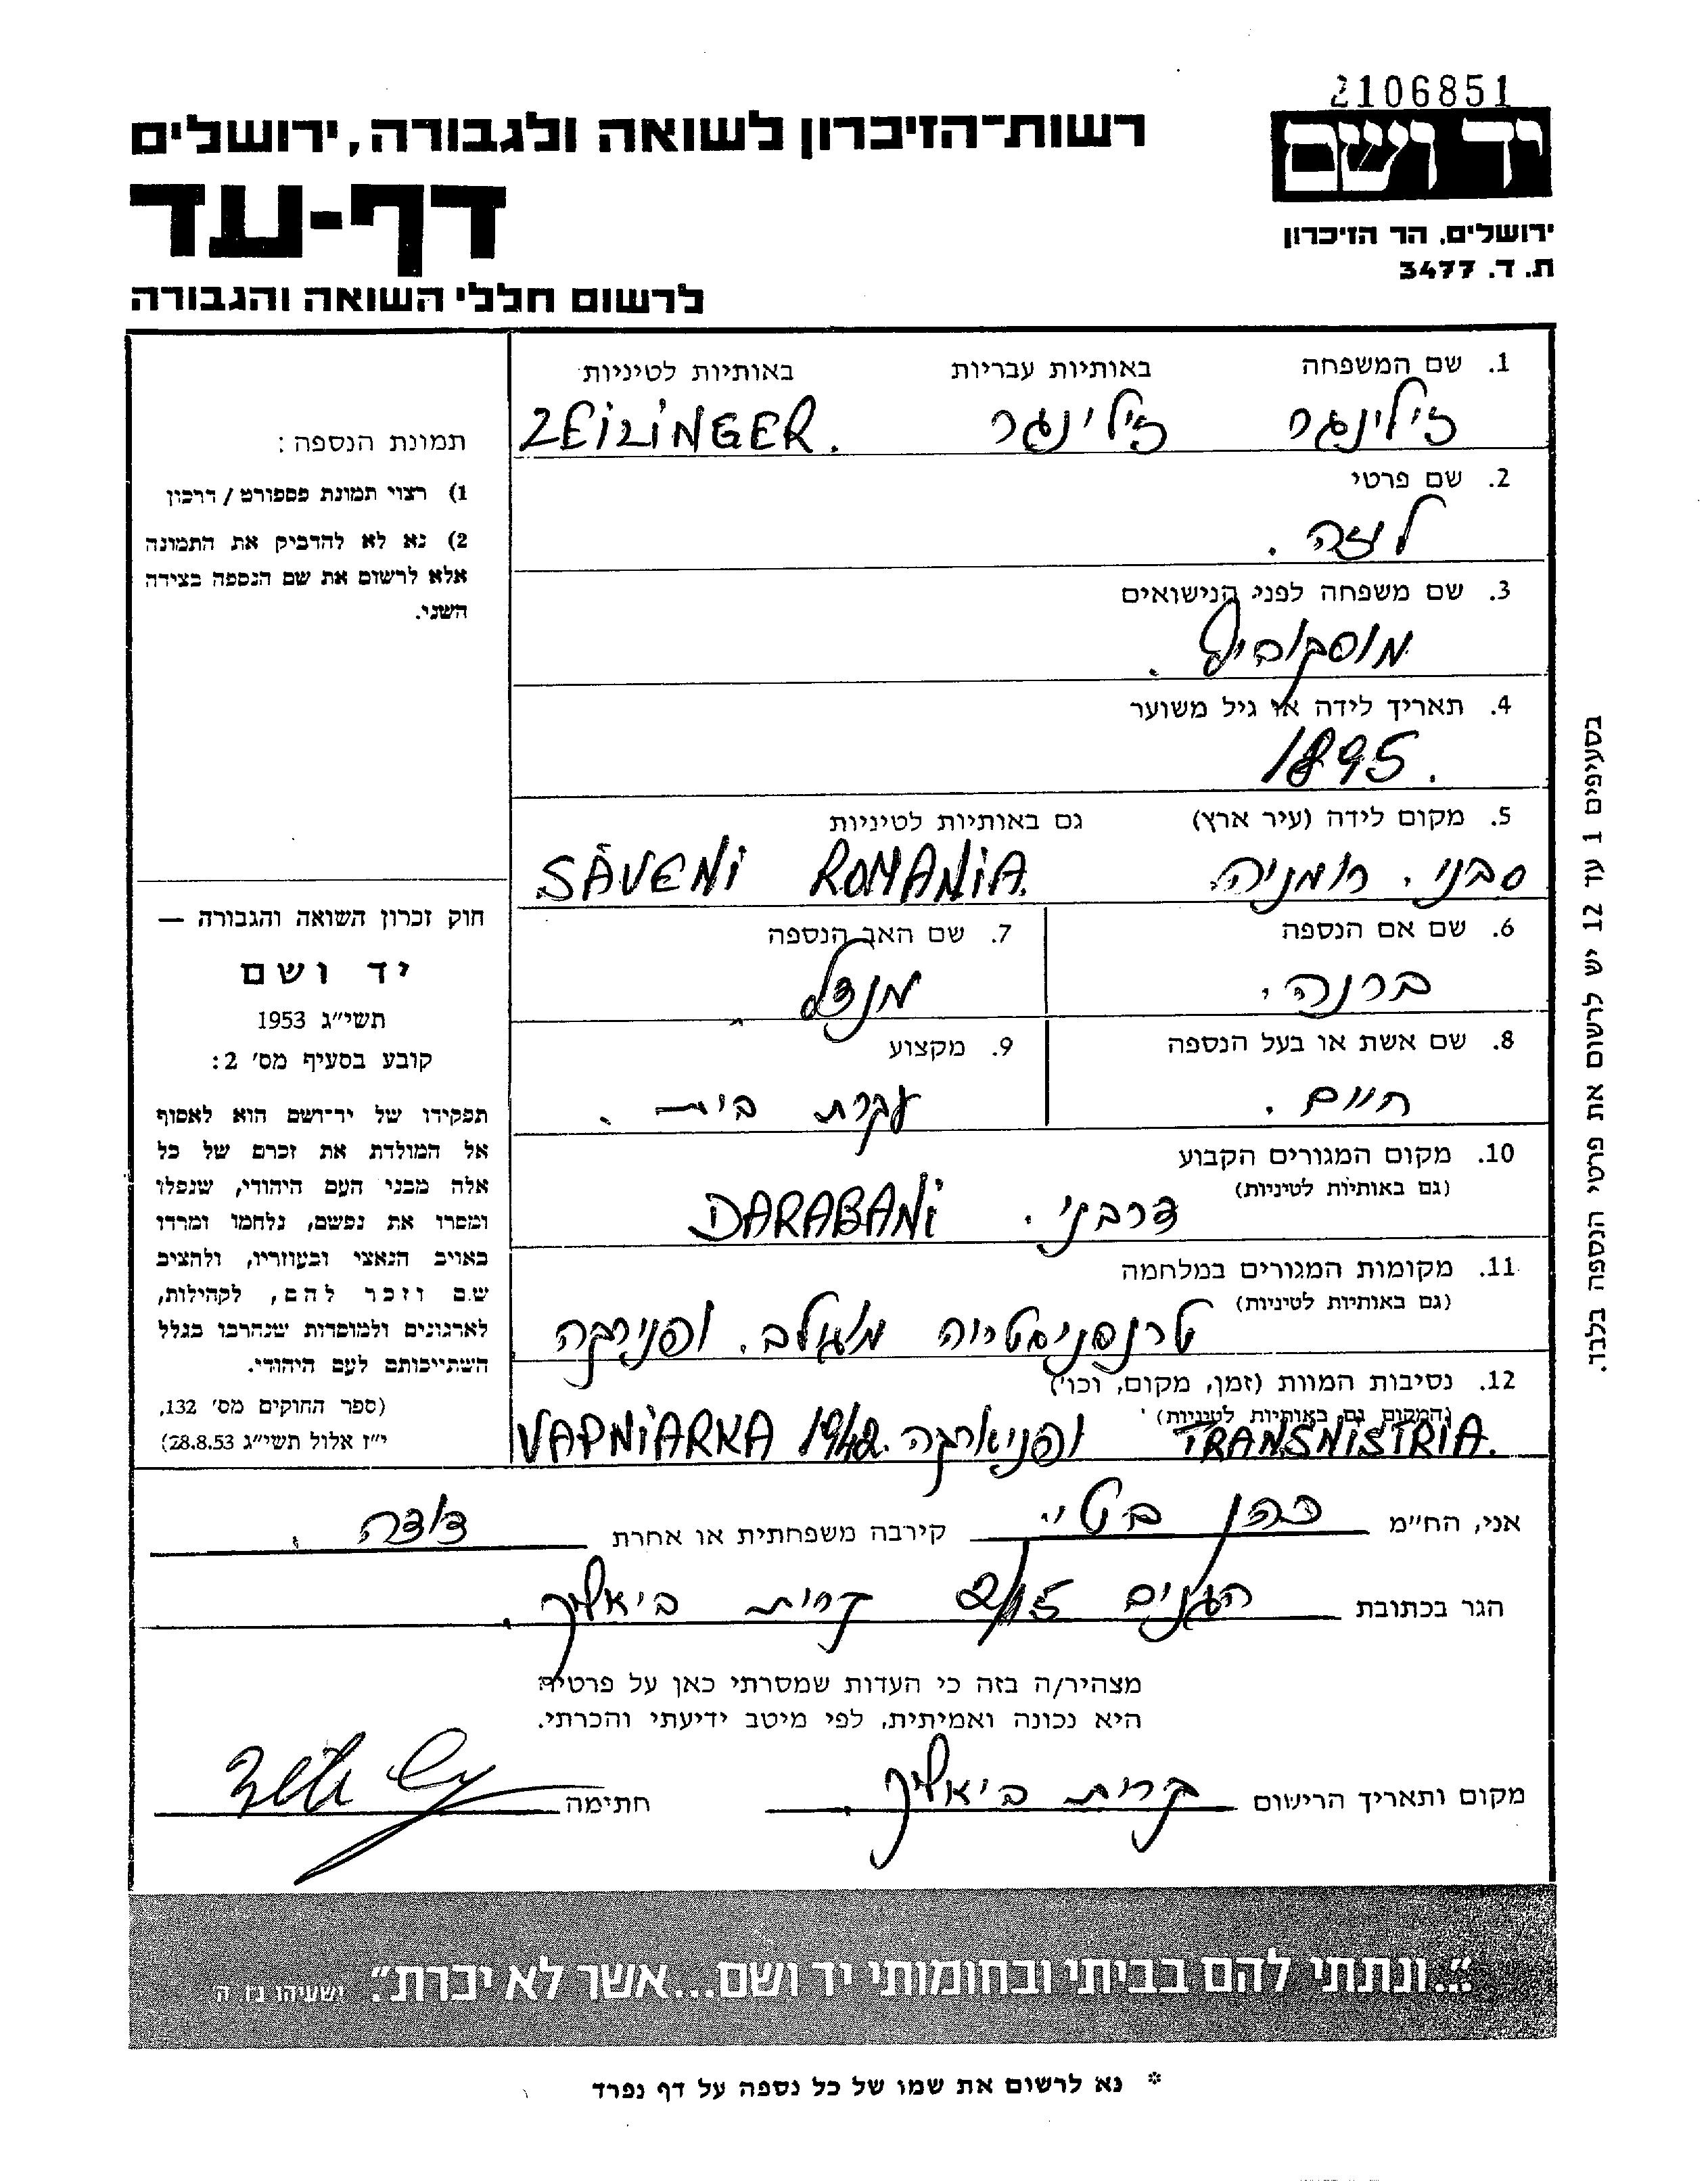 2106851
יד ושם
רשות־הזיכרון לשואה ולגבורה, ירושלים
דף-עד
ירושלים, הר הזיכרון
ת. ד. 3477
לרשום חללי השואה והגבורה
1. שם המשפחה באותיות עבריות באותיות לטיניות
זילינגר זילינגר ZEILINGER.
2. שם פרטי
לוזה.
3. שם משפחה לפני הנישואים
מוסקוביץ.
4. תאריך לידה או גיל משוער
1895.
5. מקום לידה (עיר ארץ) גם באותיות לטיניות
סבני. רומניה. SĂVENI ROMANIA.
6. שם אם הנספה
ברנה.
7. שם האב הנספה
מנדל.
8. שם אשת או בעל הנספה
חיים.
9. מקצוע
עקרת בית.
10. מקום המגורים הקבוע
(גם באותיות לטיניות)
דרבני. DARABANI
11. מקומות המגורים במלחמה
(גם באותיות לטיניות)
טרנסניסטריה מוגלב. ופנירקה
12. נסיבות המוות (זמן, מקום, וכו')
(המקום גם באותיות לטיניות)
TRANSNISTRIA. ופניארקה VAPNIARKA 1942.
תמונת הנספה:
1) רצוי תמונת פספורט / דרכון
2) נא לא להדביק את התמונה
אלא לרשום את שם הנספה בצידה
השני.
חוק זכרון השואה והגבורה —
יד ושם
תשי״ג 1953
קובע בסעיף מס' 2:
תפקידו של יד־ושם הוא לאסוף
אל המולדת את זכרם של כל
אלה מבני העם היהודי, שנפלו
ומסרו את נפשם, נלחמו ומרדו
באויב הנאצי ובעוזריו, ולהציב
שם וזכר להם, לקהילות,
לארגונים ולמוסדות שנחרבו בגלל
השתייכותם לעם היהודי.
(ספר החוקים מס' 132,
י״ז אלול תשי״ג 28.8.53)
בסעיפים 1 עד 12 יש לרשום את פרטי הנספה בלבד.
אני, הח״מ כהן בטי קירבה משפחתית או אחרת דודה.
הגר בכתובת הגנים קרית ביאליק.
מצהיר/ה בזה כי העדות שמסרתי כאן על פרטיה
היא נכונה ואמיתית, לפי מיטב ידיעתי והכרתי.
מקום ותאריך הרישום קרית ביאליק. חתימה
״...ונתתי להם בביתי ובחומותי יד ושם...אשר לא יכרת״. ישעיהו נו ה
* נא לרשום את שמו של כל נספה על דף נפרד